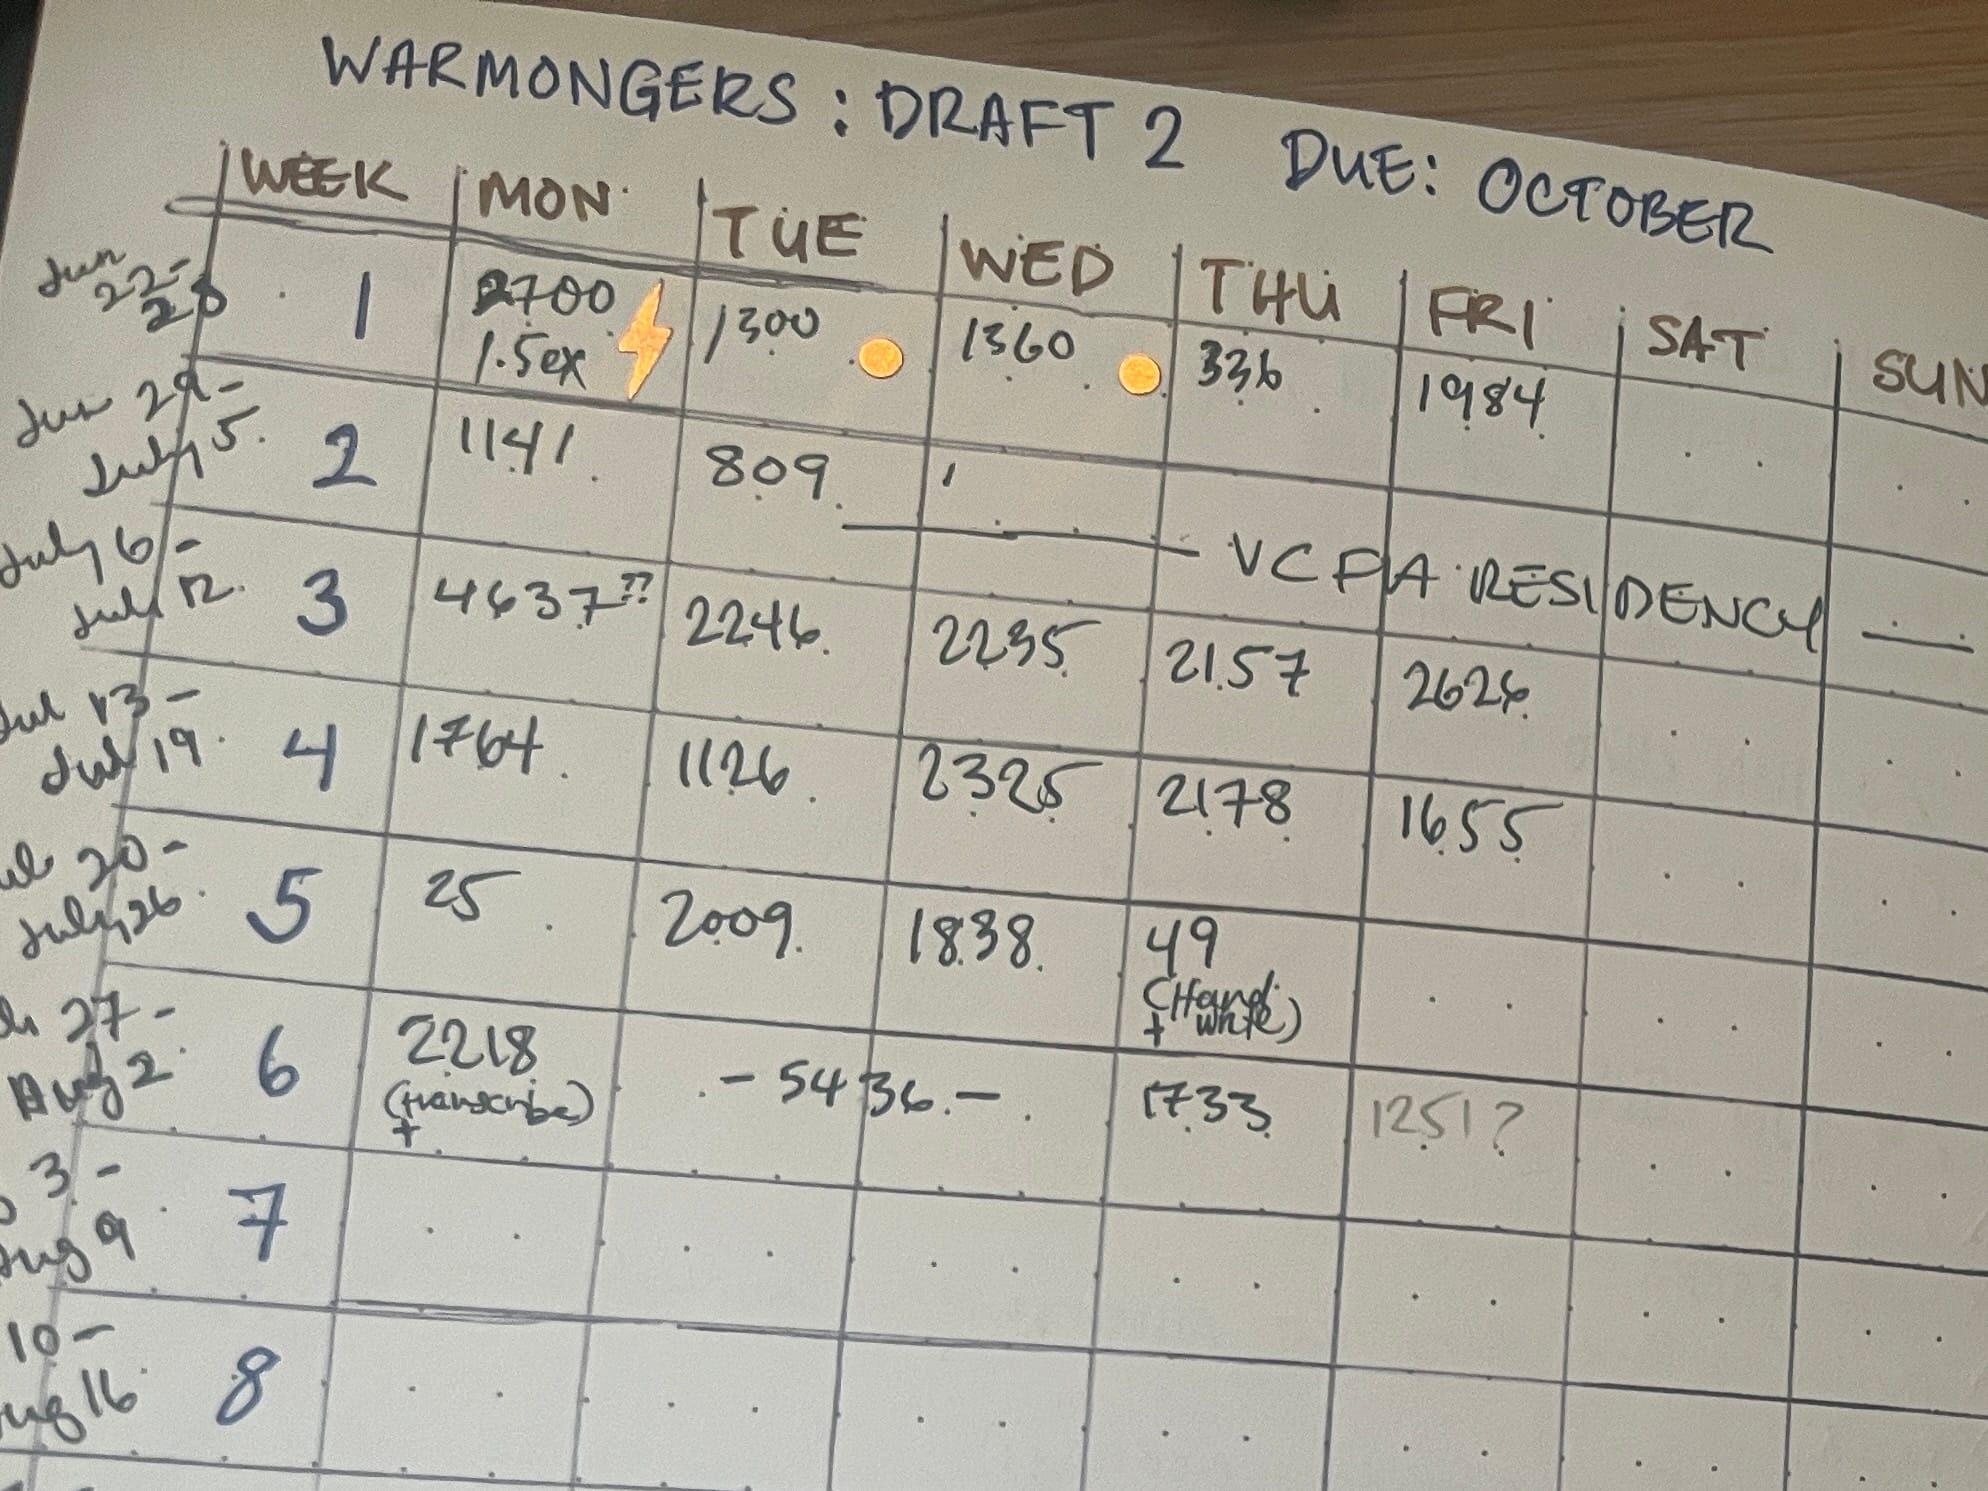 WARMONGERS: DRAFT 2 DUE: OCTOBER
WEEK MON TUE WED THU FRI SAT SUN
Jun 22-28 1 2700 1.5ex 1300 1360 336 1984
Jun 29- July 5 2 1141 809 — VCFA RESIDENCY —
July 6- July 12 3 4637?? 2246 2235 2157 2626
Jul 13- Jul 19 4 1764 1126 2325 2178 1655
20- July 26 5 25 2009 1838 49 (Hand + write)
27- Aug 2 6 2218 (transcribe) + -5436- 1733 1251?
3- Aug 9 7
10- Aug 16 8